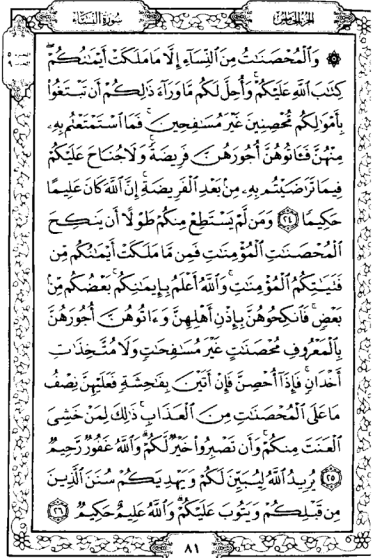 الجزء الخامس
سورة النساء
۞ وَالْمُحْصَنَاتُ مِنَ النِّسَاءِ إِلَّا مَا مَلَكَتْ أَيْمَانُكُمْ
كِتَابَ اللَّهِ عَلَيْكُمْ وَأُحِلَّ لَكُم مَّا وَرَاءَ ذَٰلِكُمْ أَن تَبْتَغُوا
بِأَمْوَالِكُم مُّحْصِنِينَ غَيْرَ مُسَافِحِينَ فَمَا اسْتَمْتَعْتُم بِهِ
مِنْهُنَّ فَآتُوهُنَّ أُجُورَهُنَّ فَرِيضَةً وَلَا جُنَاحَ عَلَيْكُمْ
فِيمَا تَرَاضَيْتُم بِهِ مِن بَعْدِ الْفَرِيضَةِ إِنَّ اللَّهَ كَانَ عَلِيمًا
حَكِيمًا ٢٤ وَمَن لَّمْ يَسْتَطِعْ مِنكُمْ طَوْلًا أَن يَنكِحَ
الْمُحْصَنَاتِ الْمُؤْمِنَاتِ فَمِن مَّا مَلَكَتْ أَيْمَانُكُم مِّن
فَتَيَاتِكُمُ الْمُؤْمِنَاتِ وَاللَّهُ أَعْلَمُ بِإِيمَانِكُم بَعْضُكُم مِّن
بَعْضٍ فَانكِحُوهُنَّ بِإِذْنِ أَهْلِهِنَّ وَآتُوهُنَّ أُجُورَهُنَّ
بِالْمَعْرُوفِ مُحْصَنَاتٍ غَيْرَ مُسَافِحَاتٍ وَلَا مُتَّخِذَاتِ
أَخْدَانٍ فَإِذَا أُحْصِنَّ فَإِنْ أَتَيْنَ بِفَاحِشَةٍ فَعَلَيْهِنَّ نِصْفُ
مَا عَلَى الْمُحْصَنَاتِ مِنَ الْعَذَابِ ذَٰلِكَ لِمَنْ خَشِيَ
الْعَنَتَ مِنكُمْ وَأَن تَصْبِرُوا خَيْرٌ لَّكُمْ وَاللَّهُ غَفُورٌ رَّحِيمٌ
٢٥ يُرِيدُ اللَّهُ لِيُبَيِّنَ لَكُمْ وَيَهْدِيَكُمْ سُنَنَ الَّذِينَ
مِن قَبْلِكُمْ وَيَتُوبَ عَلَيْكُمْ وَاللَّهُ عَلِيمٌ حَكِيمٌ ٢٦
٨١